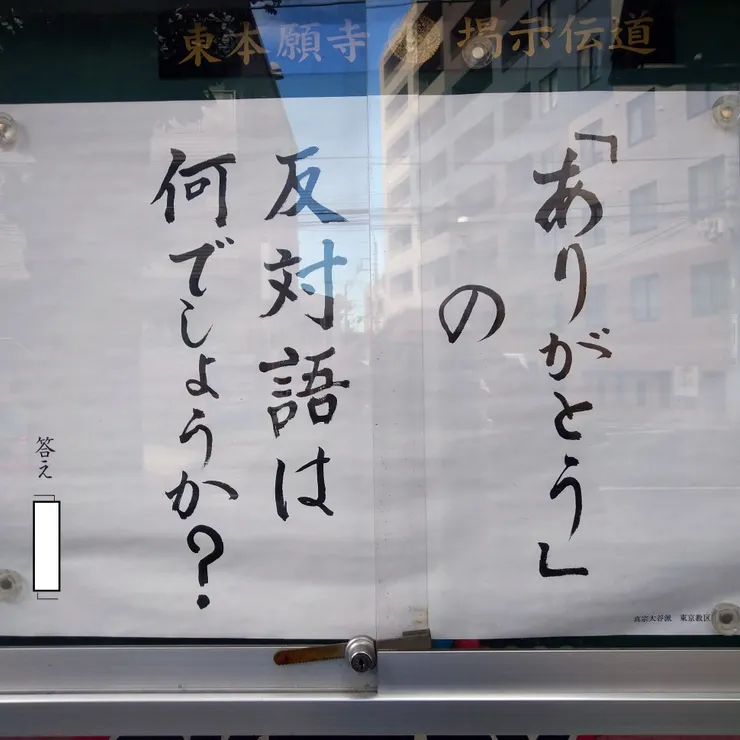 東本願寺 掲示伝道
「ありがとう」
の
反対語は
何でしょうか?
答え「 」
真宗大谷派 東京教区